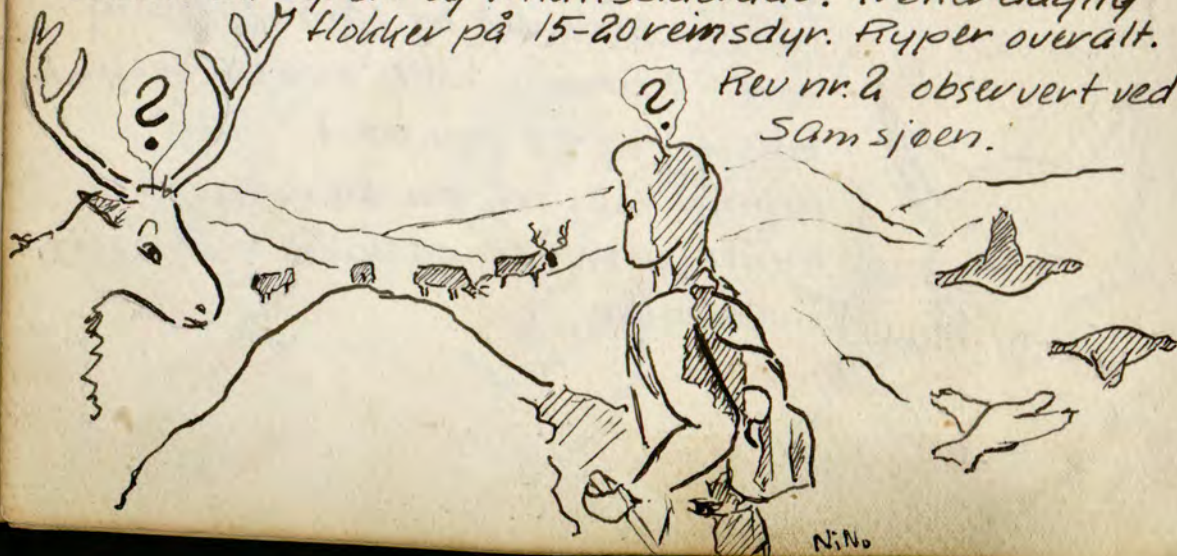 flokker på 15-20 reinsdyr. Ryper overalt.
?
?
Rev nr. 2 observert ved
Samsjøen.
NiNo